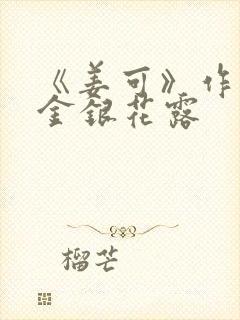 《姜可》作
金银花露
榴芒